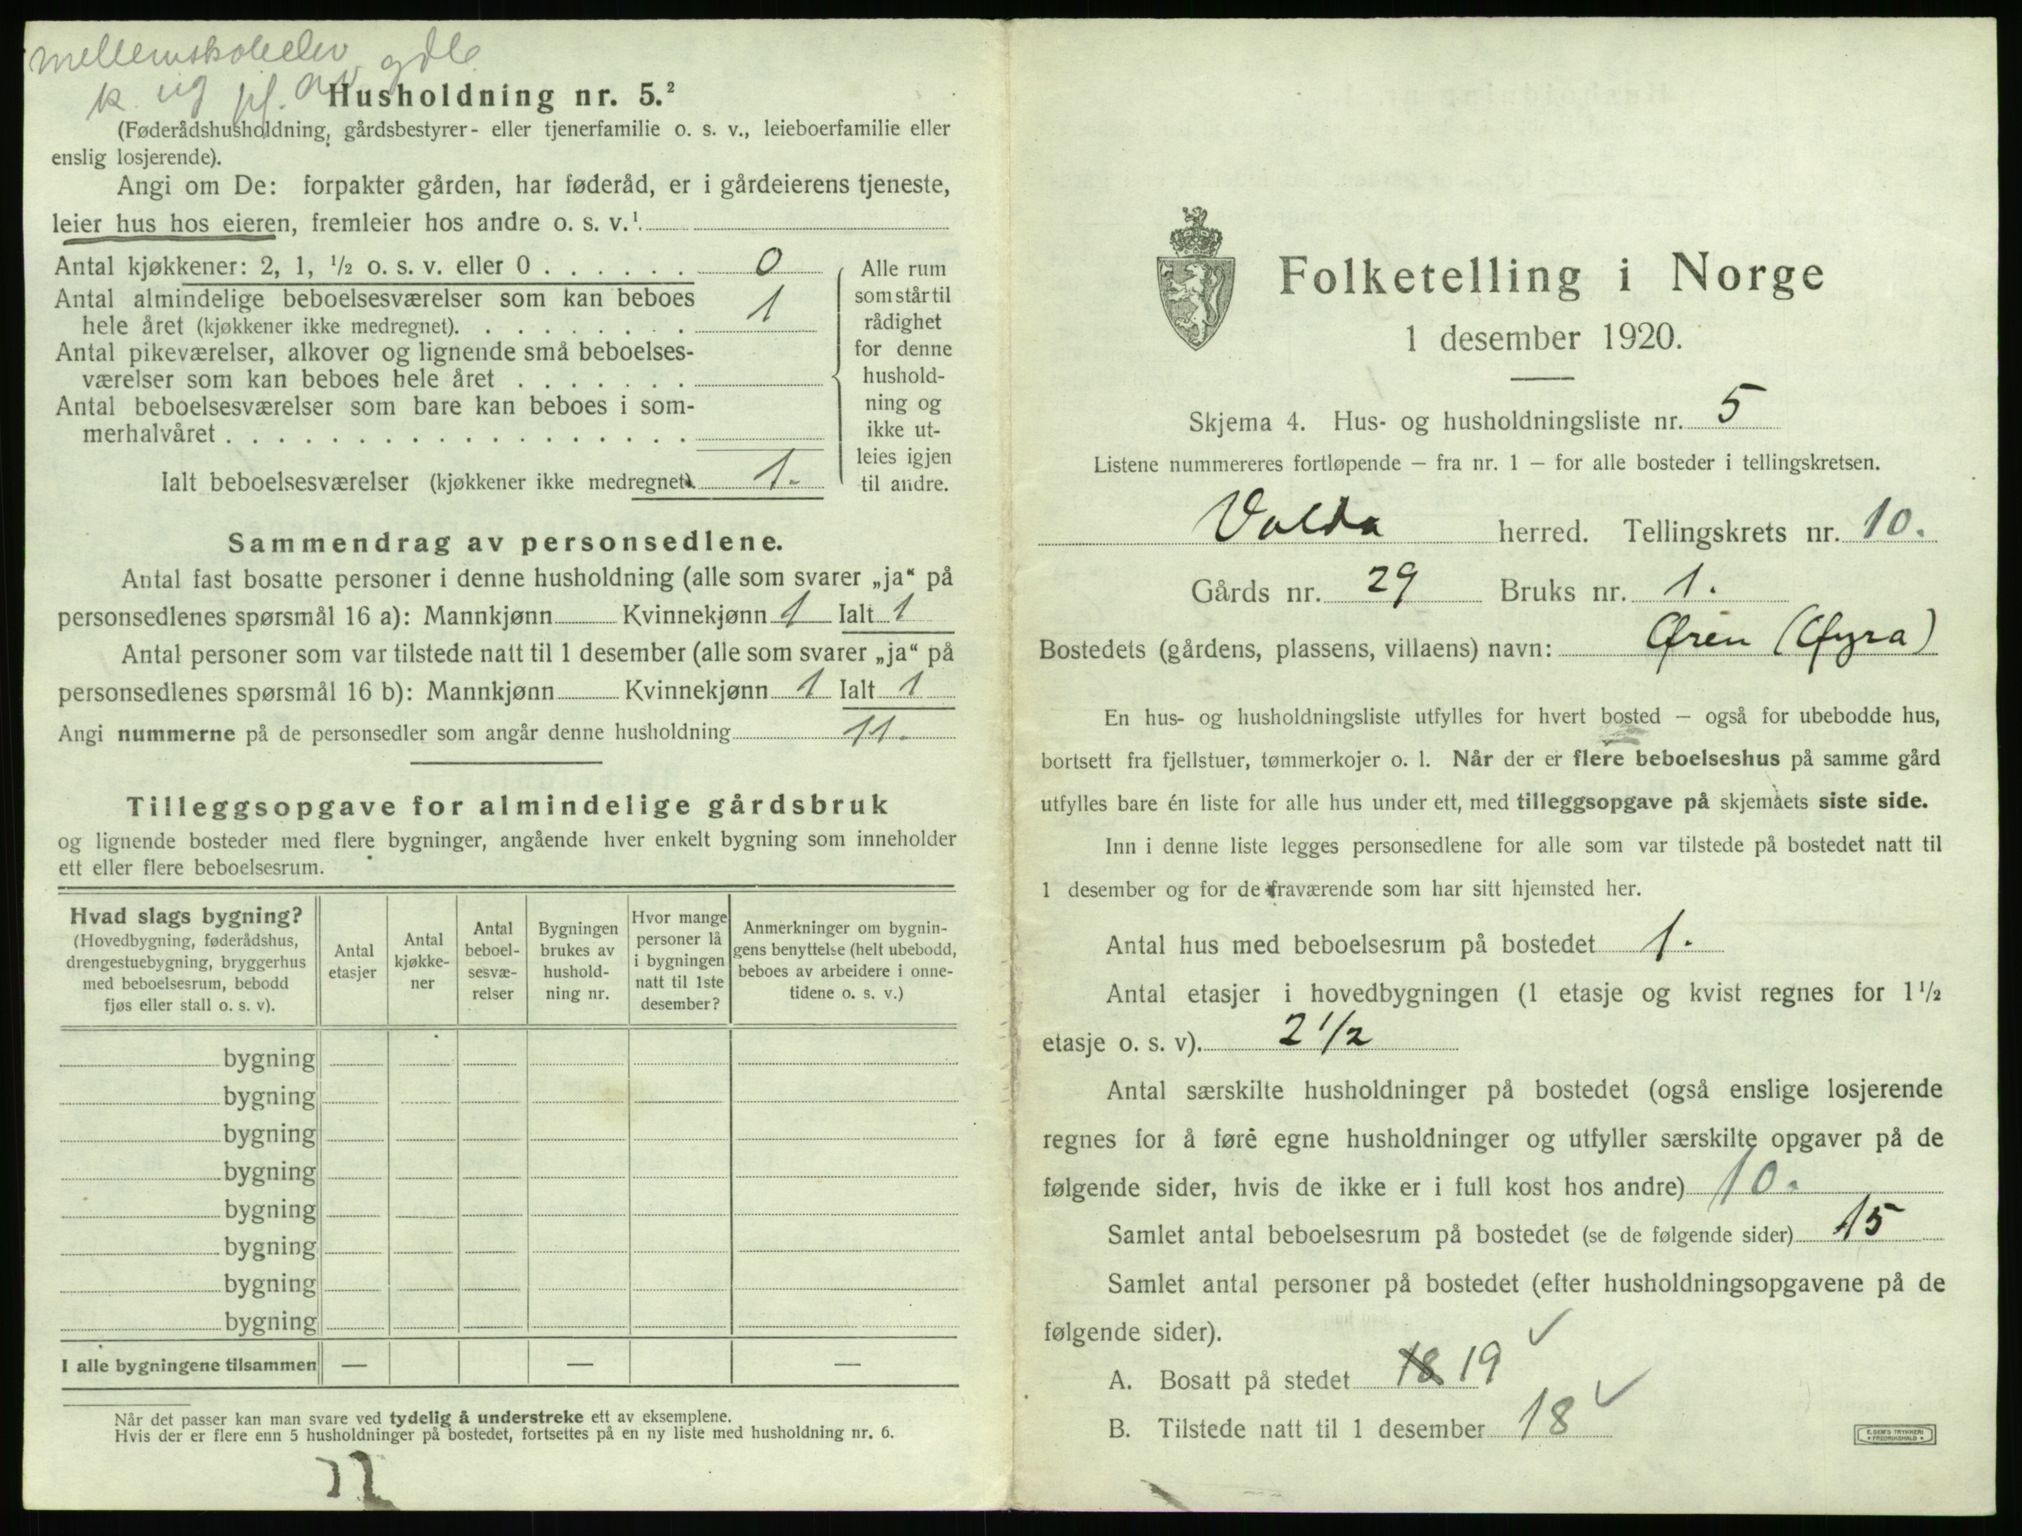 mellemskoleelev gdl.
k. ug pf.
Husholdning nr. 5.²
(Føderådshusholdning, gårdsbestyrer- eller tjenerfamilie o. s. v., leieboerfamilie eller
enslig losjerende).
Angi om De: forpakter gården, har føderåd, er i gårdeierens tjeneste,
leier hus hos eieren, fremleier hos andre o. s. v.¹
Antal kjøkkener: 2, 1, ½ o. s. v. eller 0 . . . . . . 0
Antal almindelige beboelsesværelser som kan beboes
hele året (kjøkkener ikke medregnet). . . . . . . . . 1
Antal pikeværelser, alkover og lignende små beboelses-
værelser som kan beboes hele året . . . . . . .
Antal beboelsesværelser som bare kan beboes i som-
merhalvåret . . . . . . . . . . . . . . . . . .
Ialt beboelsesværelser (kjøkkener ikke medregnet). 1.
Alle rum
som står til
rådighet
for denne
hushold-
ning og
ikke ut-
leies igjen
til andre.
Sammendrag av personsedlene.
Antal fast bosatte personer i denne husholdning (alle som svarer „ja“ på
personsedlenes spørsmål 16 a): Mannkjønn Kvinnekjønn 1 Ialt 1
Antal personer som var tilstede natt til 1 desember (alle som svarer „ja“ på
personsedlenes spørsmål 16 b): Mannkjønn Kvinnekjønn 1 Ialt 1
Angi nummerne på de personsedler som angår denne husholdning 11.
Tilleggsopgave for almindelige gårdsbruk
og lignende bosteder med flere bygninger, angående hver enkelt bygning som inneholder
ett eller flere beboelsesrum.
Hvad slags bygning?
(Hovedbygning, føderådshus,
drengestuebygning, bryggerhus
med beboelsesrum, bebodd
fjøs eller stall o. s. v).
Antal
etasjer
Antal
kjøkke-
ner
Antal
beboel-
sesvæ-
relser
Bygningen
brukes av
hushold-
ning nr.
Hvor mange
personer lå
i bygningen
natt til 1ste
desember?
Anmerkninger om bygnin-
gens benyttelse (helt ubebodd,
beboes av arbeidere i onne-
tidene o. s. v.)
bygning
bygning
bygning
bygning
bygning
bygning
bygning
bygning
I alle bygningene tilsammen — — —
Når det passer kan man svare ved tydelig å understreke ett av eksemplene.
Hvis der er flere enn 5 husholdninger på bostedet, fortsettes på en ny liste med husholdning nr. 6.
Folketelling i Norge
1 desember 1920.
Skjema 4. Hus- og husholdningsliste nr. 5
Listene nummereres fortløpende — fra nr. 1 — for alle bosteder i tellingskretsen.
Volda herred. Tellingskrets nr. 10.
Gårds nr. 29 Bruks nr. 1.
Bostedets (gårdens, plassens, villaens) navn: Øren (Øyra)
En hus- og husholdningsliste utfylles for hvert bosted — også for ubebodde hus,
bortsett fra fjellstuer, tømmerkojer o. l. Når der er flere beboelseshus på samme gård
utfylles bare én liste for alle hus under ett, med tilleggsopgave på skjemaets siste side.
Inn i denne liste legges personsedlene for alle som var tilstede på bostedet natt til
1 desember og for de fraværende som har sitt hjemsted her.
Antal hus med beboelsesrum på bostedet 1.
Antal etasjer i hovedbygningen (1 etasje og kvist regnes for 1½
etasje o. s. v). 2 1/2
Antal særskilte husholdninger på bostedet (også enslige losjerende
regnes for å føre egne husholdninger og utfyller særskilte opgaver på de
følgende sider, hvis de ikke er i full kost hos andre) 10.
Samlet antal beboelsesrum på bostedet (se de følgende sider) 15
Samlet antal personer på bostedet (efter husholdningsopgavene på de
følgende sider).
A. Bosatt på stedet 18 19 ✓
B. Tilstede natt til 1 desember 18 ✓
E. SEM'S TRYKKERI
FREDRIKSHALD